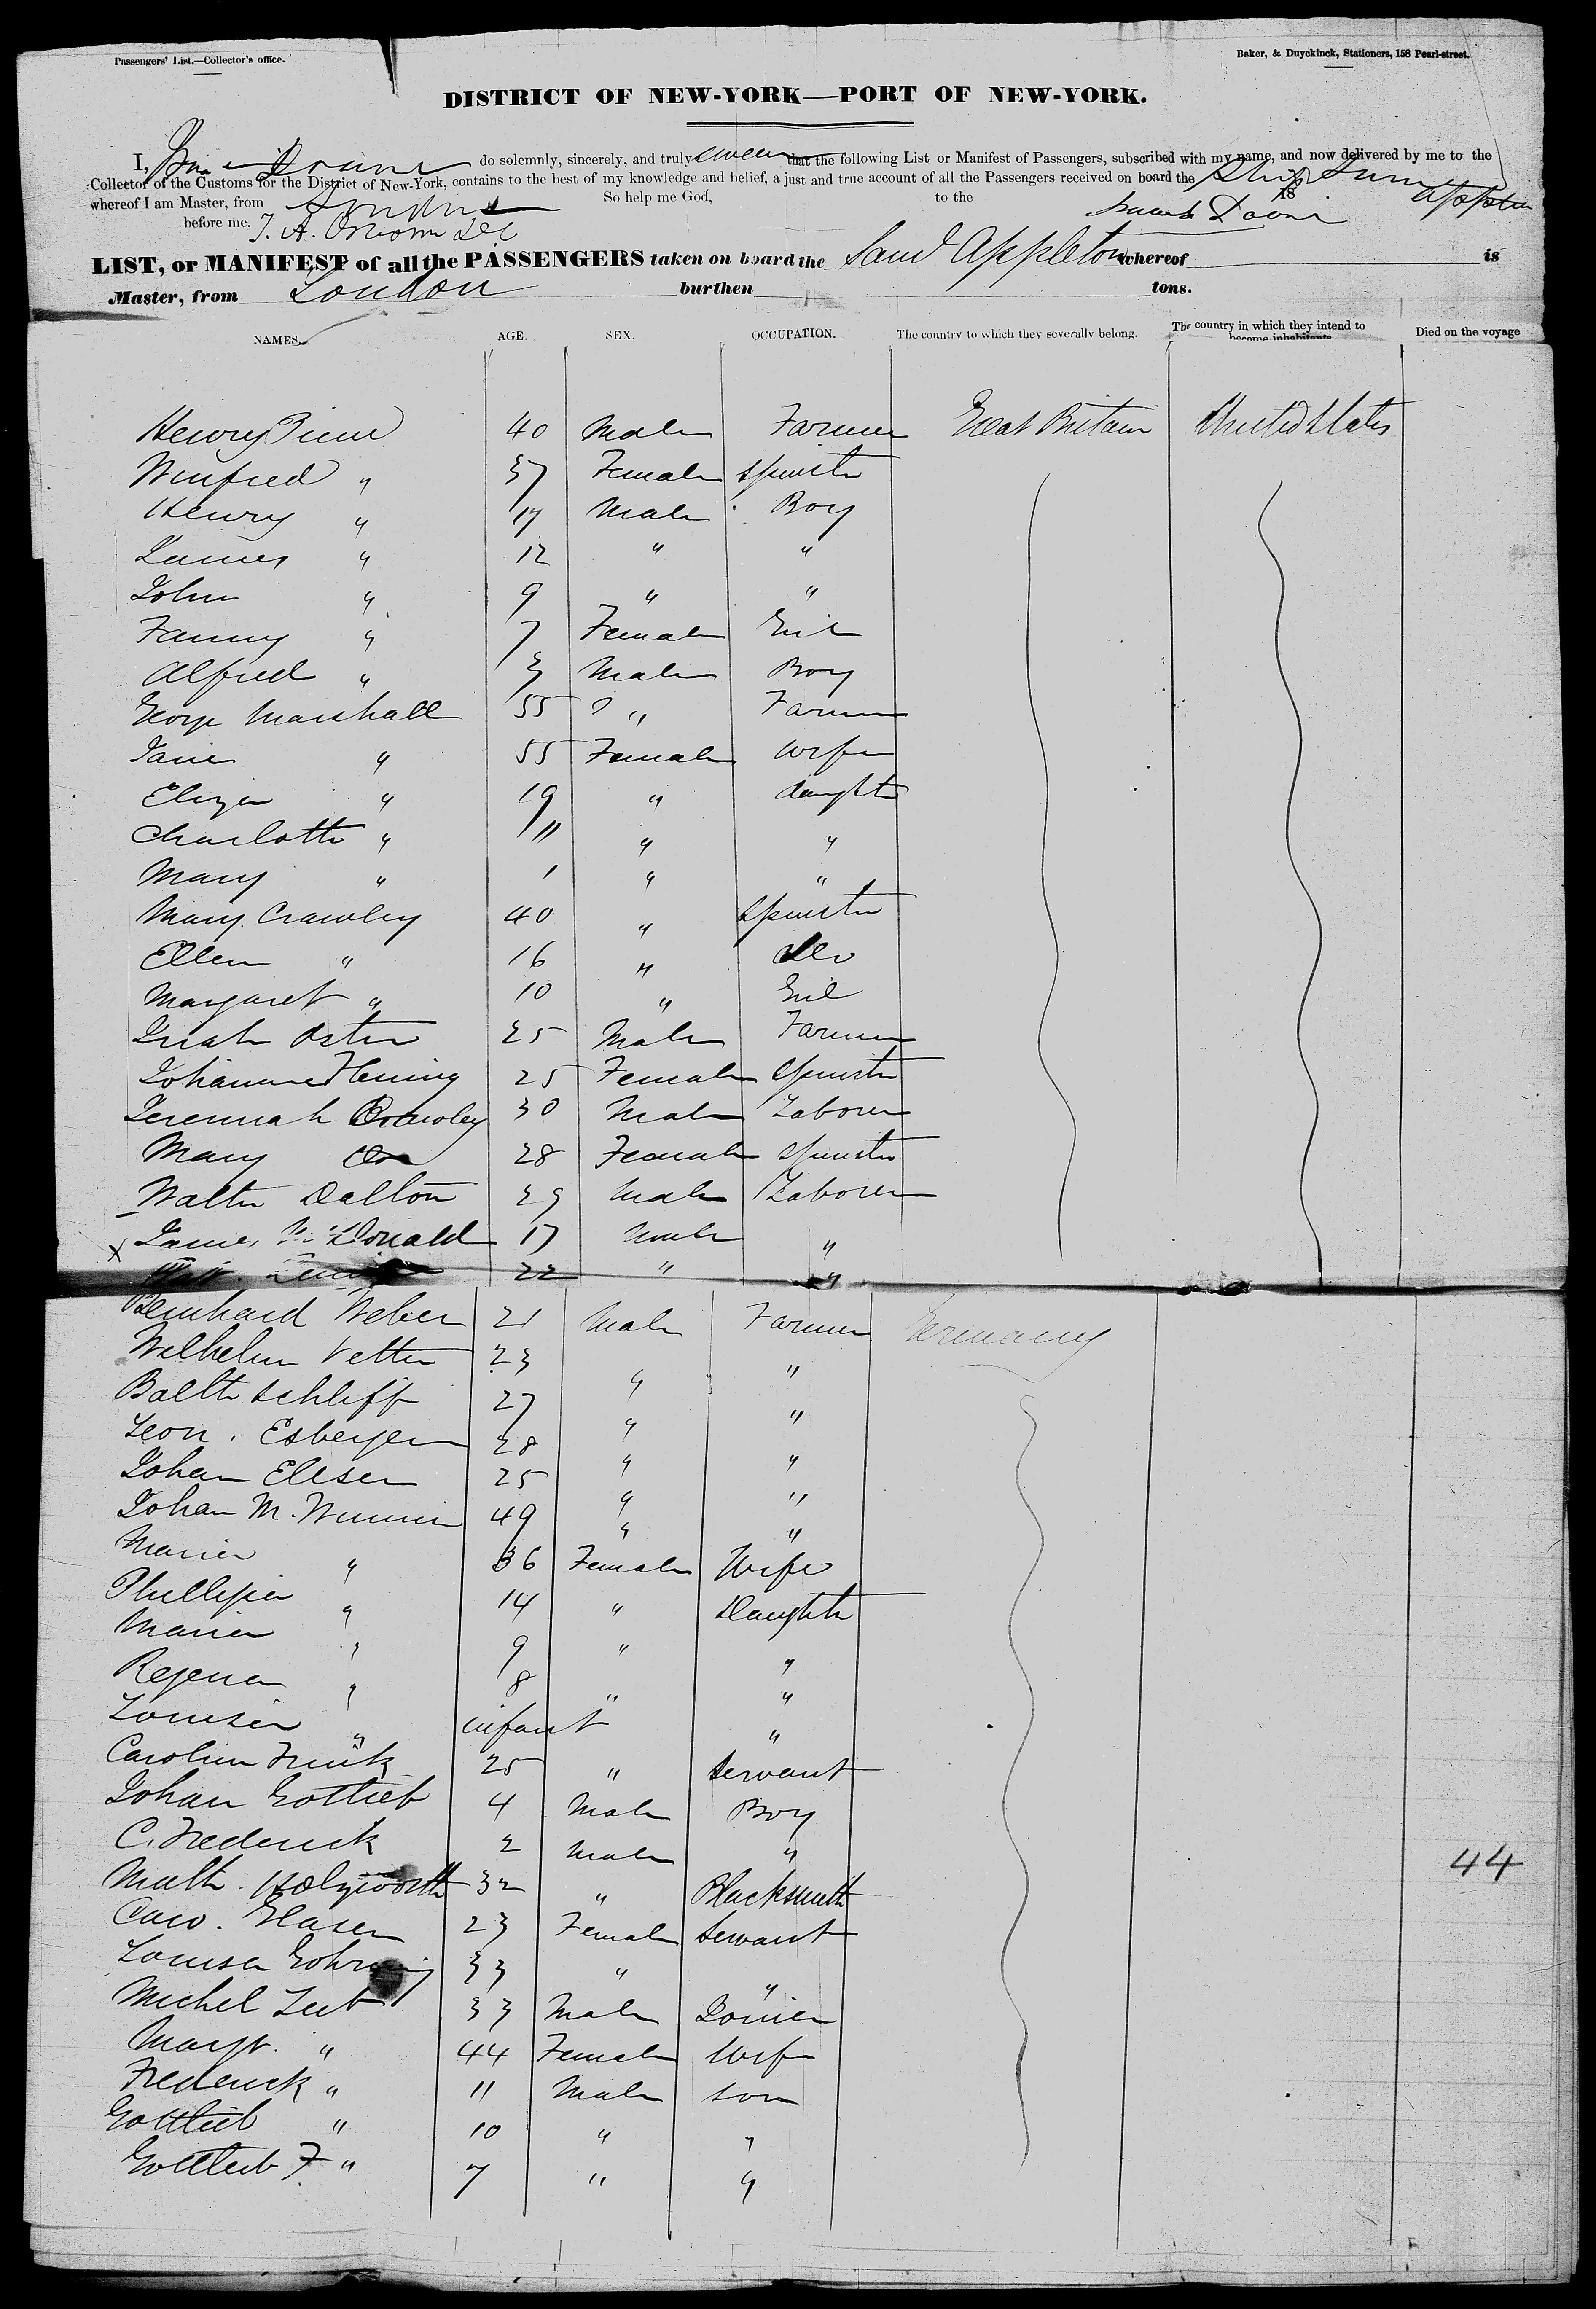 Passengers' List.—Collector's office.
Baker, & Duyckinck, Stationers, 158 Pearl-street.
DISTRICT OF NEW-YORK—PORT OF NEW-YORK.
I, Doane do solemnly, sincerely, and truly swear that the following List or Manifest of Passengers, subscribed with my name, and now delivered by me to the
Collector of the Customs for the District of New-York, contains to the best of my knowledge and belief, a just and true account of all the Passengers received on board the Ship
whereof I am Master, from London So help me God, to the 18 Appleton
before me, Doane
LIST, or MANIFEST of all the PASSENGERS taken on board the Saml Appleton whereof is
Master, from London burthen tons.
NAMES. AGE. SEX. OCCUPATION. The country to which they severally belong. The country in which they intend to become inhabitants Died on the voyage
Henry 40 Male Farmer Great Britain United States
Winfred " 37 Female Spinster
Henry " 17 Male Boy
James " 12 " "
John " 9 " "
Fanny " 7 Female Girl
Alfred " 3 Male Boy
George Marshall 55 " Farmer
Jane " 55 Female Wife
Eliza " 19 " daughter
Charlotte " 11 " "
Mary " 1 " "
Mary Crawley 40 " Spinster
Ellen " 16 " do
Margaret " 10 " Girl
25 Male Farmer
Johanna Fleming 25 Female Spinster
Jeremiah Crowley 30 Male Laborer
Mary Do 28 Female Spinster
Walter Dalton 29 Male Laborer
X James McDonald 17 Male "
22 " "
Bernhard Weber 21 Male Farmer Germany
Wilhelm Vetter 23 " "
Balth Schliff 27 " "
Leon. Esberger 28 " "
Johan Ellsen 25 " "
Johan M. 49 " "
Maria " 36 Female Wife
Phillipia " 14 " Daughter
Maria " 9 " "
Regena " 8 " "
Louisa " infant "
Carolina 25 " Servant
Johan Gottlieb 4 Male Boy
C. Frederick 2 Male "
Math. Holzworth 32 " Blacksmith
Caro. Glaser 23 Female Servant
Louisa Gohring 33 " "
Michel Leib 33 Male Joiner
Margt. " 44 Female Wife
Frederick " 11 Male Son
Gottlieb " 10 " "
Gottleib F " 7 " "
44